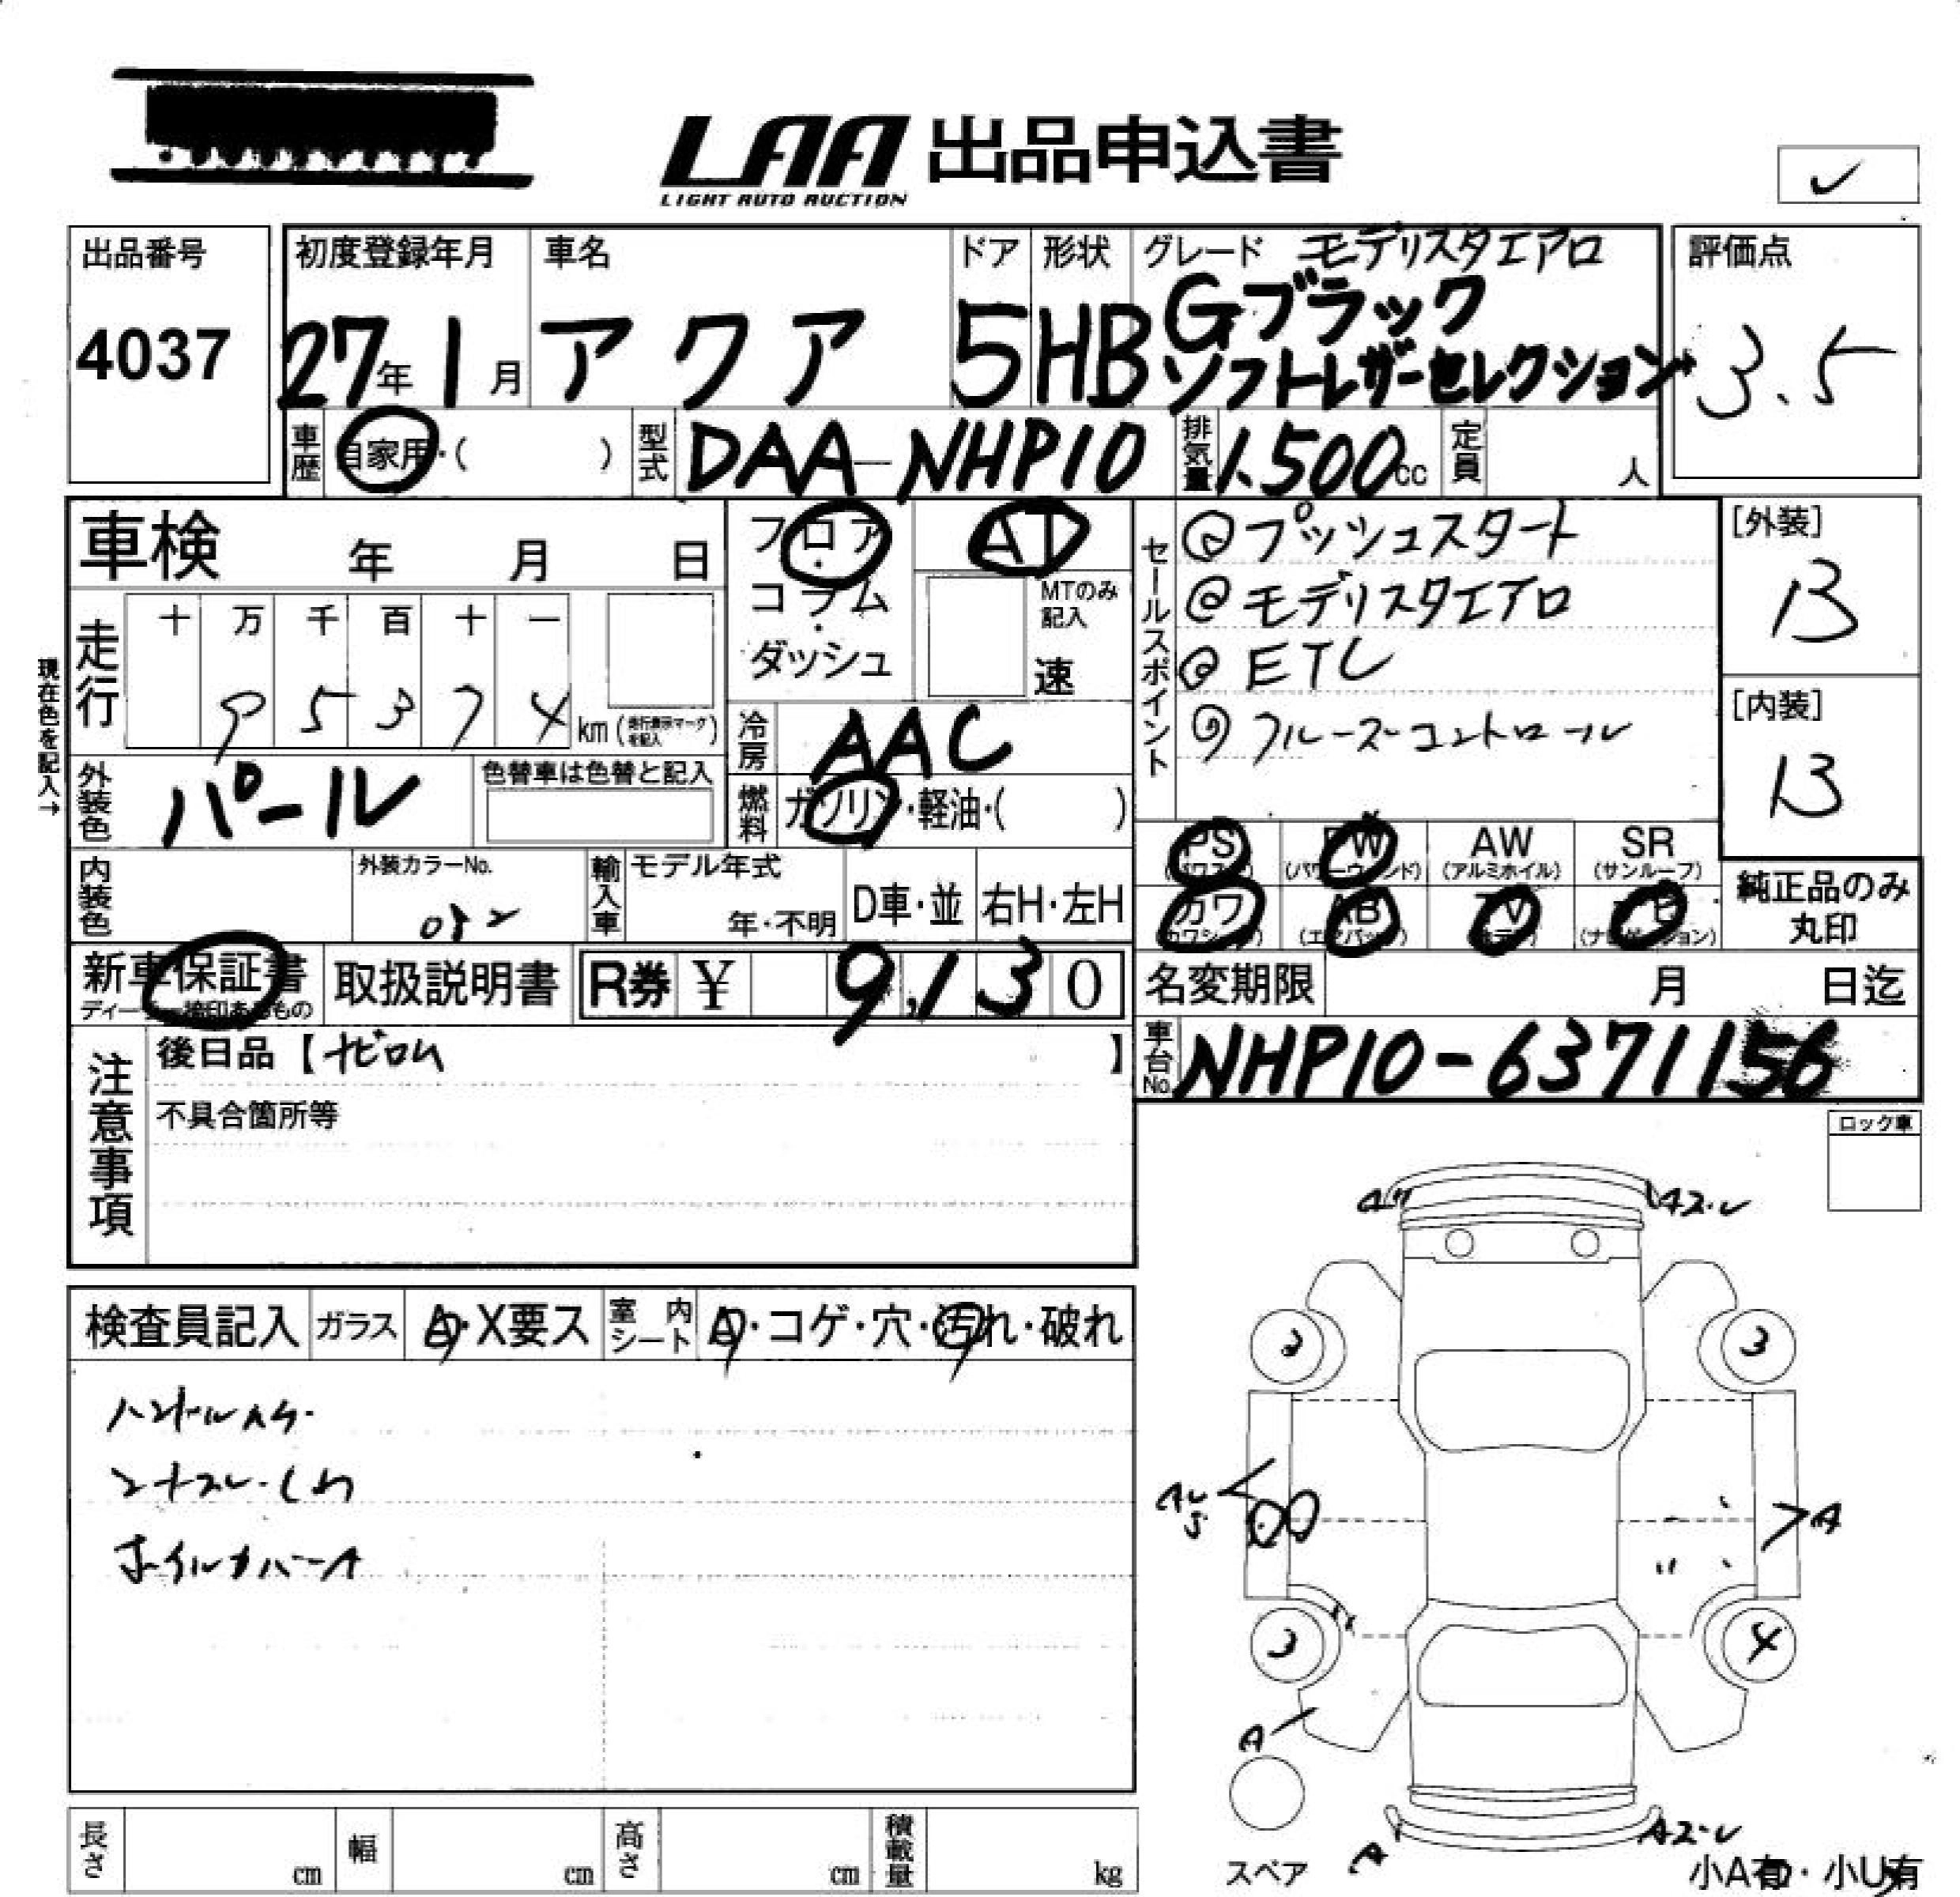 LAA 出品申込書
LIGHT AUTO AUCTION
出品番号
4037
初度登録年月
27年1月
車名
アクア
ドア
5
形状
HB
グレード モデリスタエアロ
Gブラック
ソフトレザーセレクション
評価点
3.5
車歴
自家用・( )
型式
DAA-NHP10
排気量
1.500cc
定員
人
車検 年 月 日
フロア
・
コラム
・
ダッシュ
AT
MTのみ
記入
速
セールスポイント
@プッシュスタート
@モデリスタエアロ
@ETC
クルーズコントロール
[外装]
B
[内装]
B
現在色を記入→
走行
十 万 千 百 十 一
9 5 3 7 4
km (走行表示マークを記入)
冷房
AAC
外装色
パール
色替車は色替と記入
燃料
ガソリン・軽油・( )
PS
(パワステ)
PW
(パワーウィンド)
AW
(アルミホイル)
SR
(サンルーフ)
カワ
(カワシート)
AB
(エアバッグ)
TV
ナビ
(ナビゲーション)
純正品のみ
丸印
内装色
外装カラーNo.
082
輸入車
モデル年式
年・不明
D車・並
右H・左H
新車保証書
ディーラー捺印あるもの
取扱説明書
R券 ¥ 9,130
名変期限 月 日迄
車台No.
NHP10-6371156
注意事項
後日品【ナビロム 】
不具合箇所等
ロック車
検査員記入
ガラス
A・X要ス
室内
シート
A・コゲ・穴・汚れ・破れ
ハンドルスレ.
ホイルカバーA
A
A
A
A
2
3
3
4
スペア
小A有・小U有
長さ cm
幅 cm
高さ cm
積載量 kg